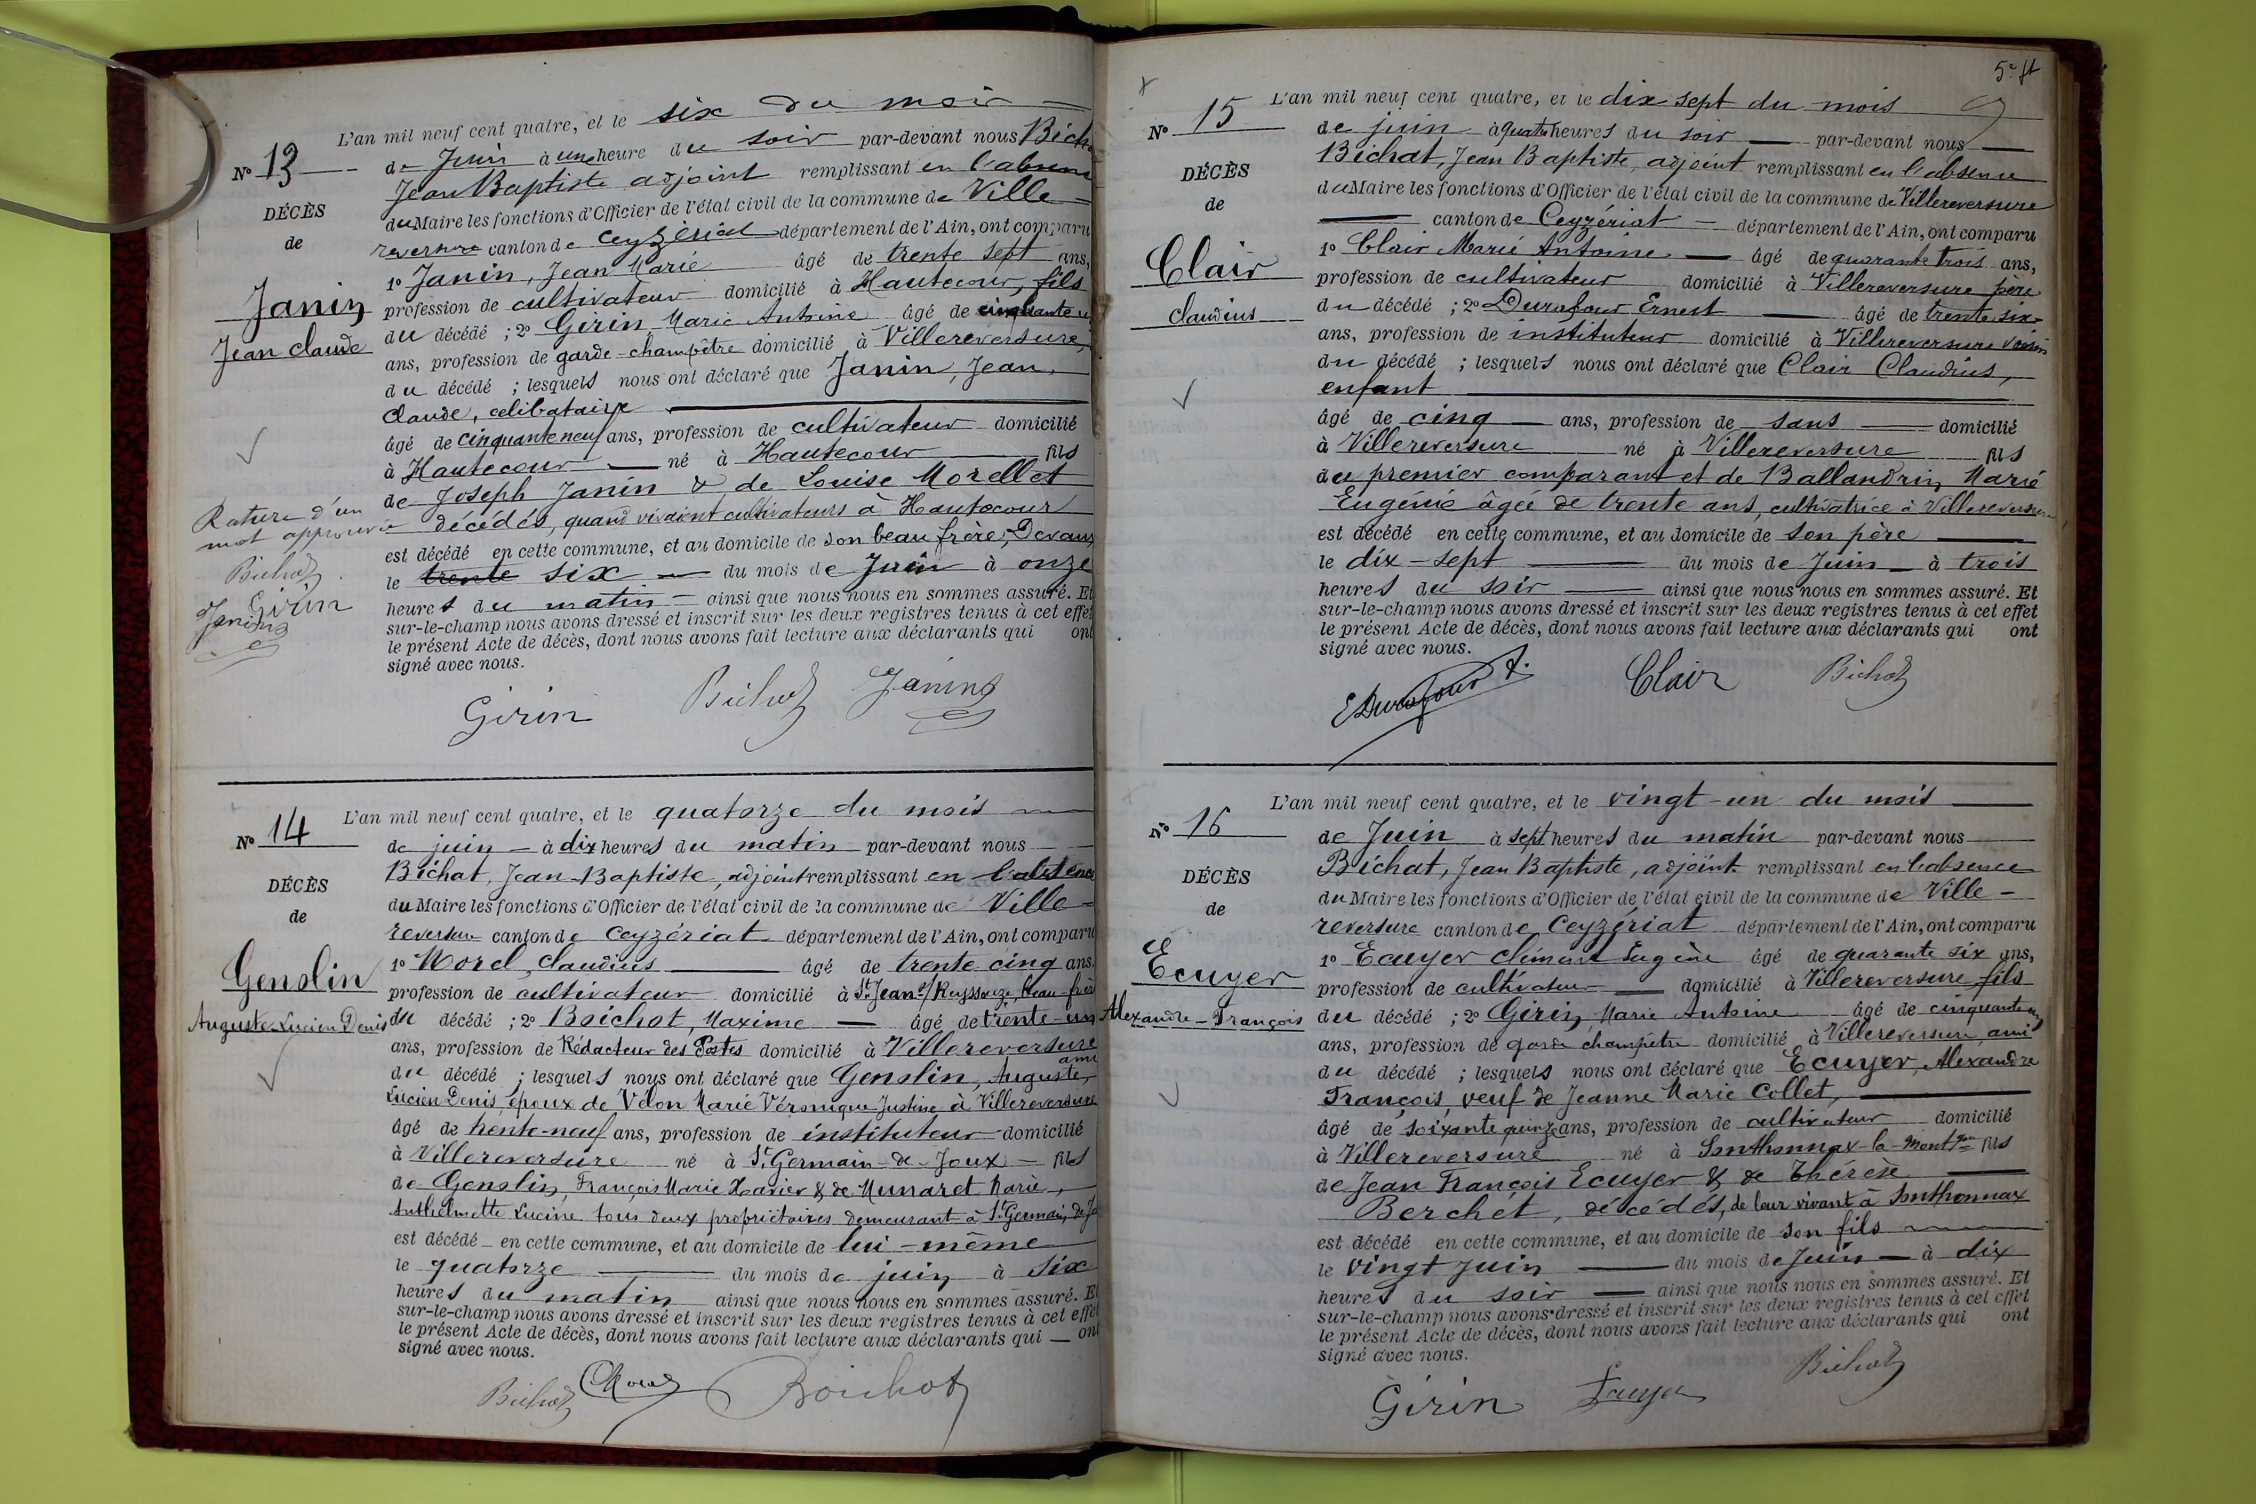 L'an mil neuf cent quatre, et le six du mois
N° 13
de Juin à une heure du soir par-devant nous Bich
Jean Baptiste adjoint remplissant en l'absence
DÉCÈS
du Maire les fonctions d'Officier de l'état civil de la commune de Ville-
de
reversure canton de Ceyzériat département de l'Ain, ont comparu
1° Janin, Jean Marie âgé de trente sept ans,
Janin
profession de cultivateur domicilié à Hautecour, fils
Jean Claude
du décédé ; 2° Girin Marie Antoine âgé de cinquante u
ans, profession de garde-champêtre domicilié à Villereversure,
du décédé ; lesquels nous ont déclaré que Janin, Jean,
Claude, célibataire
âgé de cinquante neuf ans, profession de cultivateur domicilié
à Hautecour né à Hautecour fils
de Joseph Janin & de Louise Morellet
décédés, quand vivaient cultivateurs à Hautecour
est décédé en cette commune, et au domicile de son beau frère, Devaux
le trente six du mois de Juin à onze
heures du matin - ainsi que nous nous en sommes assuré. Et
sur-le-champ nous avons dressé et inscrit sur les deux registres tenus à cet effet
le présent Acte de décès, dont nous avons fait lecture aux déclarants qui ont
signé avec nous.
Rature d'un
mot approuvée
Bichat
Girin
Janin
Girin Bichat Janin
L'an mil neuf cent quatre, et le quatorze du mois
N° 14
de juin - à dix heures du matin par-devant nous
Bichat, Jean-Baptiste, adjoint remplissant en l'absence
DÉCÈS
du Maire les fonctions d'Officier de l'état civil de la commune de Ville-
de
reversure canton de Ceyzériat département de l'Ain, ont comparu
1° Morel, Claudius âgé de trente cinq ans,
Genolin
profession de cultivateur domicilié à St Jean s/ Reyssouze, beau-frère
Auguste Lucien Denis
du décédé ; 2° Boichot, Maxime âgé de trente-un
ans, profession de Rédacteur des Postes domicilié à Villereversure
ami
du décédé ; lesquels nous ont déclaré que Genolin, Auguste,
Lucien Denis, époux de Velon Marie Véronique Justine à Villereversure
âgé de trente-neuf ans, profession de instituteur domicilié
à Villereversure né à St Germain-de-Joux - fils
de Genolin, François Marie Xavier & de Munaret Marie,
Anthelmette Lucine tous deux propriétaires demeurant à St Germain de Jo
est décédé en cette commune, et au domicile de lui-même
le quatorze du mois de juin à six
heures du matin ainsi que nous nous en sommes assuré. Et
sur-le-champ nous avons dressé et inscrit sur les deux registres tenus à cet effet
le présent Acte de décès, dont nous avons fait lecture aux déclarants qui - ont
signé avec nous.
Bichat CMorel Boichot
5e ft
L'an mil neuf cent quatre, et le dix sept du mois
N° 15
de juin à quatre heures du soir par-devant nous
Bichat, Jean Baptiste, adjoint remplissant en l'absence
DÉCÈS
du Maire les fonctions d'Officier de l'état civil de la commune de Villereversure
de
canton de Ceyzériat - département de l'Ain, ont comparu
1° Clair Marie Antoine âgé de quarante trois ans,
Clair
profession de cultivateur domicilié à Villereversure père
Claudius
du décédé ; 2° Durafour Ernest âgé de trente-six
ans, profession de instituteur domicilié à Villereversure voisin
du décédé ; lesquels nous ont déclaré que Clair Claudius,
enfant
âgé de cinq ans, profession de sans domicilié
à Villereversure né à Villereversure fils
du premier comparant et de Ballandrin Marie
Eugénie âgée de trente ans, cultivatrice à Villereversure
est décédé en cette commune, et au domicile de son père
le dix-sept du mois de Juin à trois
heures du soir ainsi que nous nous en sommes assuré. Et
sur-le-champ nous avons dressé et inscrit sur les deux registres tenus à cet effet
le présent Acte de décès, dont nous avons fait lecture aux déclarants qui ont
signé avec nous.
EDurafour Clair Bichat
L'an mil neuf cent quatre, et le vingt-un du mois
N° 16
de Juin à sept heures du matin par-devant nous
Bichat, Jean Baptiste, adjoint remplissant en l'absence
DÉCÈS
du Maire les fonctions d'Officier de l'état civil de la commune de Ville-
de
reversure canton de Ceyzériat département de l'Ain, ont comparu
1° Ecuyer Clément Eugène âgé de quarante six ans,
Ecuyer
profession de cultivateur domicilié à Villereversure fils
Alexandre-François
du décédé ; 2° Girin Marie Antoine âgé de cinquante un
ans, profession de garde champêtre domicilié à Villereversure, ami
du décédé ; lesquels nous ont déclaré que Ecuyer, Alexandre
François, veuf de Jeanne Marie Collet,
âgé de soixante quinze ans, profession de cultivateur domicilié
à Villereversure né à Sonthonnax-la-Montgne fils
de Jean François Ecuyer & de Thérèse
Berchet, décédés, de leur vivant à Sonthonnax
est décédé en cette commune, et au domicile de son fils
le vingt juin du mois de Juin à dix
heures du soir ainsi que nous nous en sommes assuré. Et
sur-le-champ nous avons dressé et inscrit sur les deux registres tenus à cet effet
le présent Acte de décès, dont nous avons fait lecture aux déclarants qui ont
signé avec nous.
Girin Ecuyer Bichat